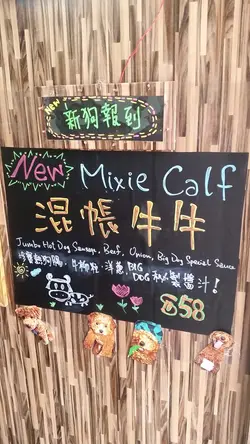 New
新狗報到
New Mixie Calf
混帳牛牛
Jumbo Hot Dog Sausage, Beef, Onion, Big Dog Special Sauce
洋蔥 BIG DOG 秘製醬汁!
$58